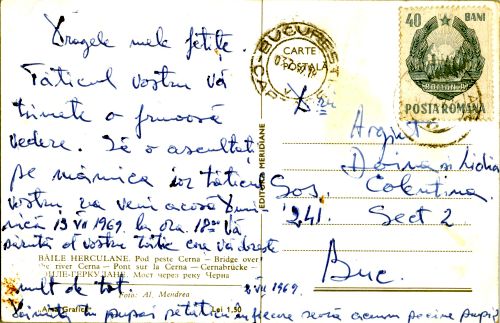 Dragele mele fetițe.
Tăticul vostru vă
trimete o frumoasă
vedere. Să o ascultați
pe mămica iar tăticu
vostru va veni acasă
13 VII 1969. la ora 18 00 Vă
sărută al vostru tătic care vă dorește
mult de tot. 8 VII 1969.
BĂILE HERCULANE. Pod peste Cerna – Bridge over
the river Cerna – Pont sur la Cerna – Cernabrücke –
БЭИЛЕ-ГЕРКУЛАНЕ. Мост через реку Черна
Foto: Al. Mendrea
Artă Grafică Lei 1,50
EDITURA MERIDIANE
CARTE
POȘTALĂ
BUCUREȘTI
40 BANI
POSTA ROMANA
Doina și Lidia
Sos. Colentina
241. Sect 2
Buc.